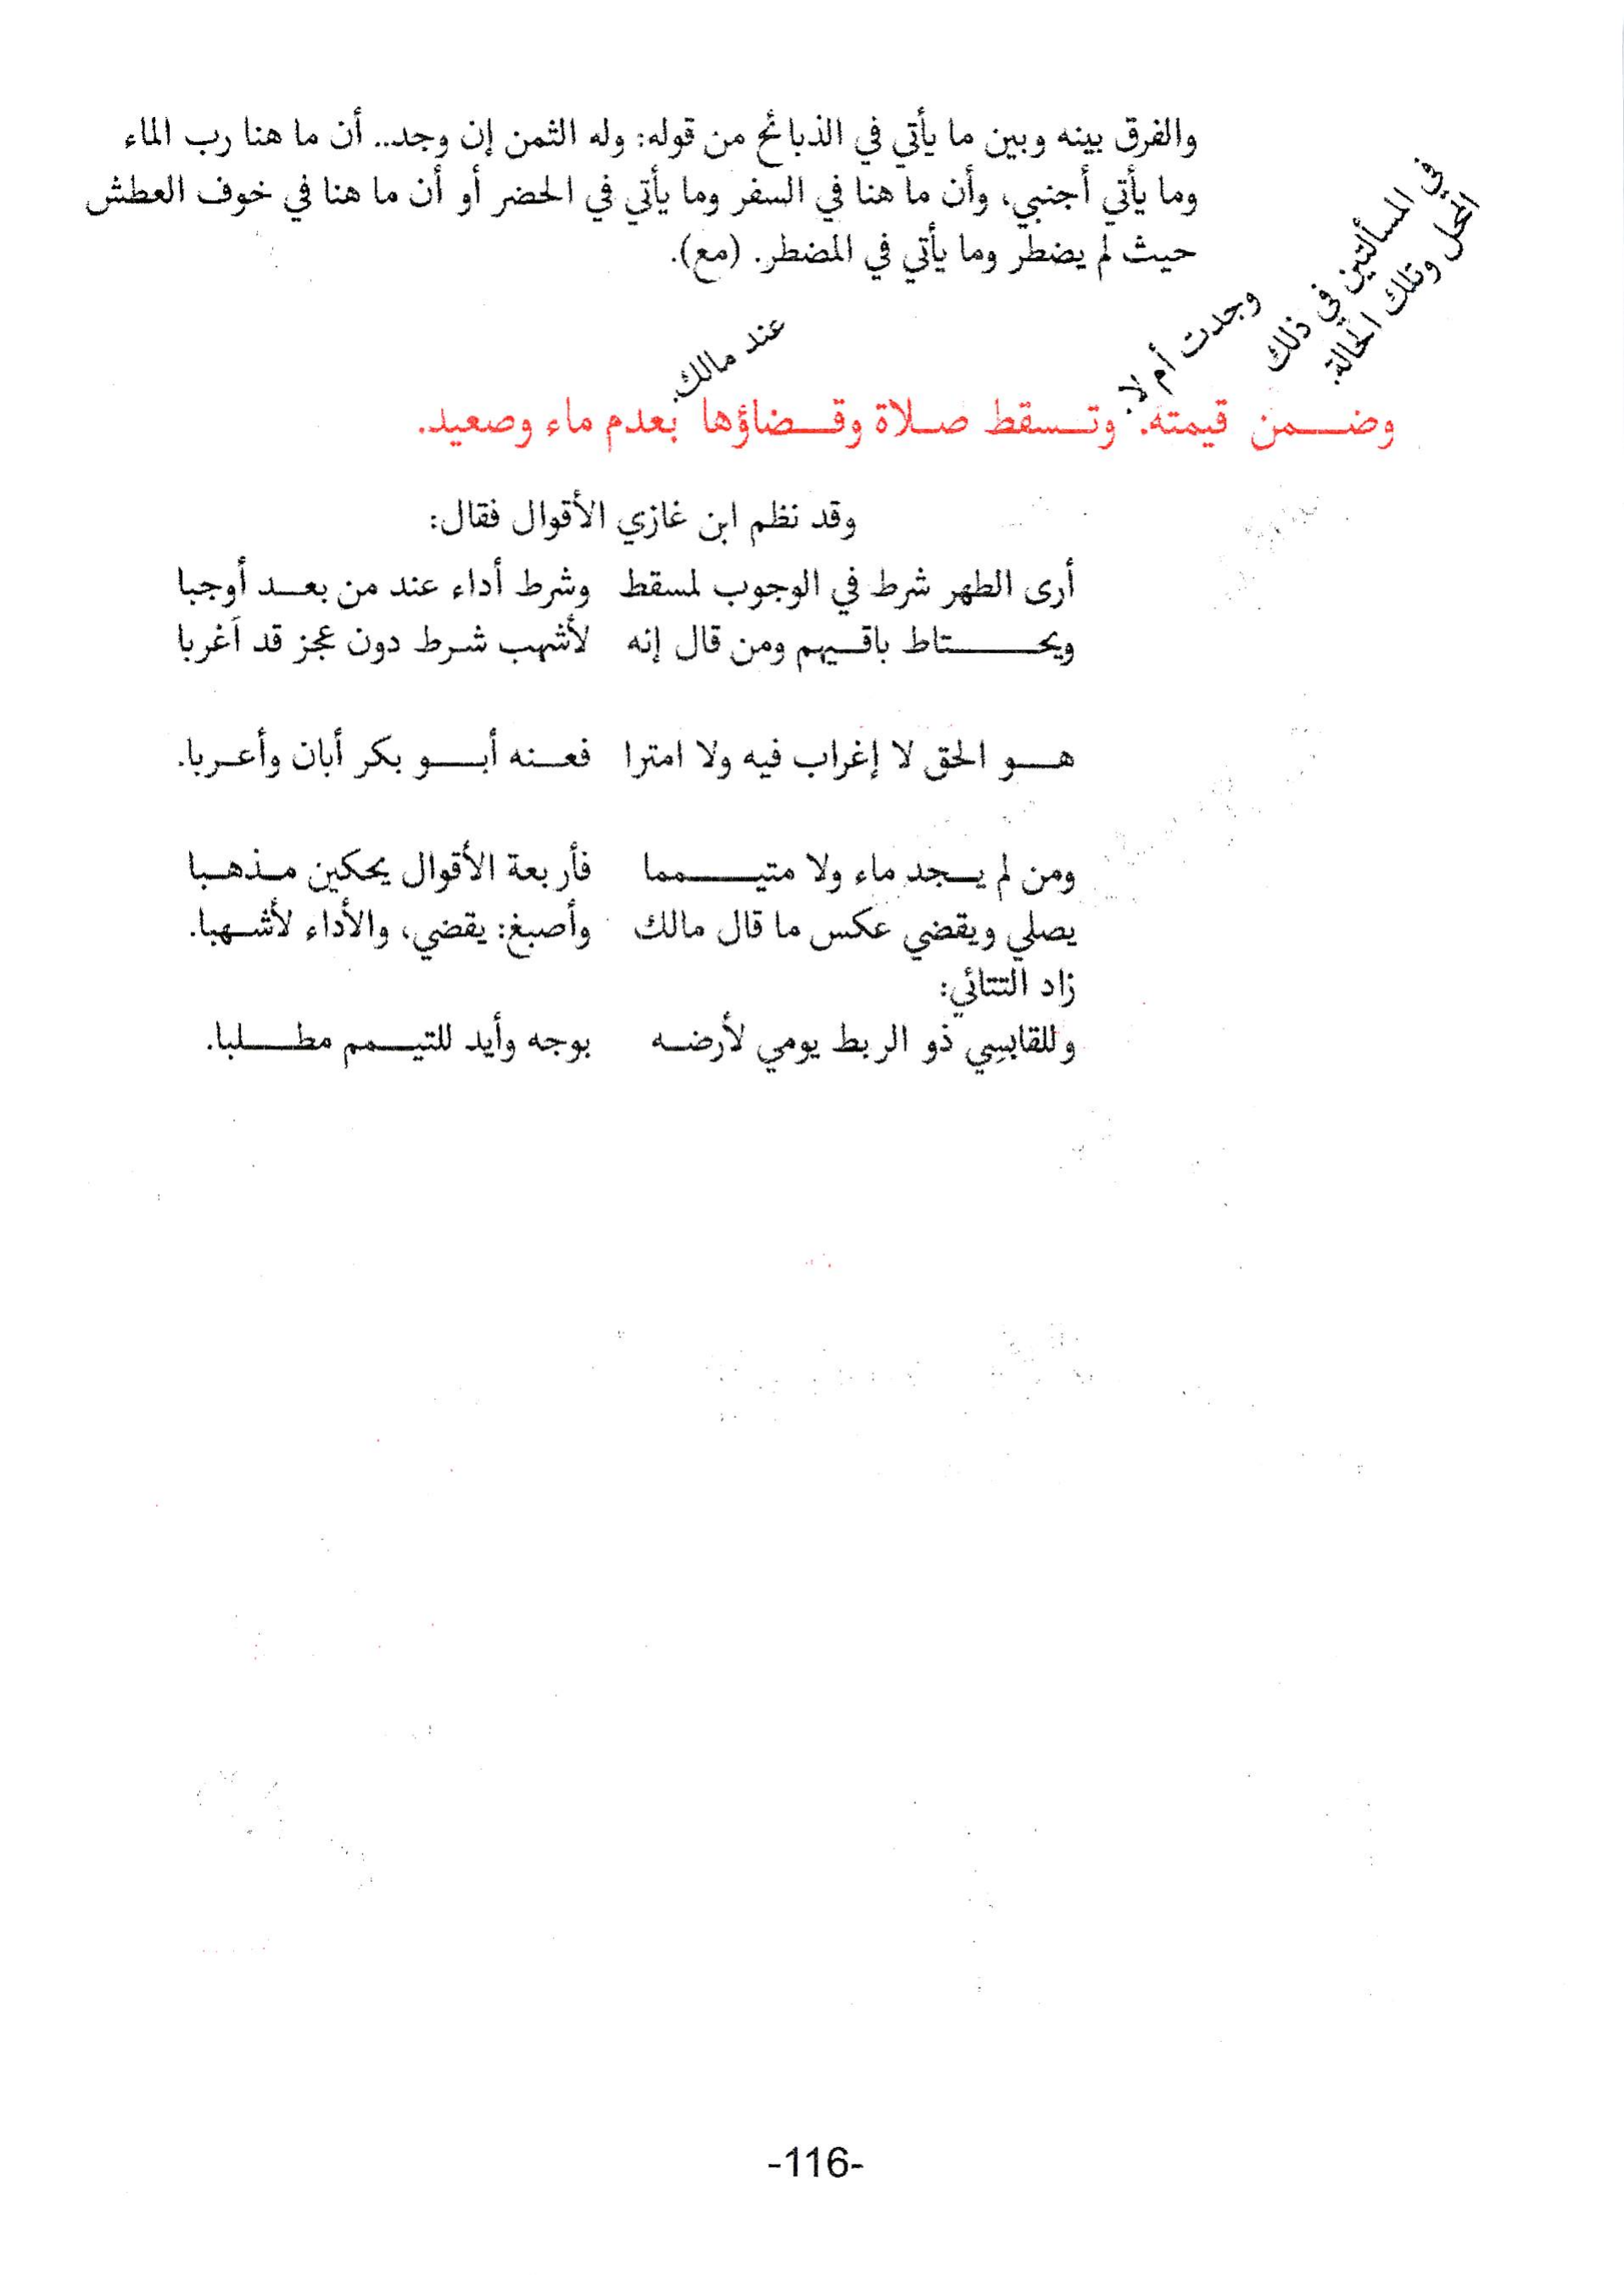 والفرق بينه وبين ما يأتي في الذبائح من قوله: وله الثمن إن وجد.. أن ما هنا رب الماء
وما يأتي أجنبي، وأن ما هنا في السفر وما يأتي في الحضر أو أن ما هنا في خوف العطش
حيث لم يضطر وما يأتي في المضطر. (مع).
في المسألتين في ذلك
المحل وتلك الحالة.
وجدت أم لا.
عند مالك.
وضمن قيمته. وتسقط صلاة وقضاؤها بعدم ماء وصعيد.
وقد نظم ابن غازي الأقوال فقال:
أرى الطهر شرط في الوجوب لمسقط وشرط أداء عند من بعد أوجبا
ويحتاط باقيهم ومن قال إنه لأشهب شرط دون عجز قد اَغربا
هو الحق لا إغراب فيه ولا امترا فعنه أبو بكر أبان وأعربا.
ومن لم يجد ماء ولا متيمما فأربعة الأقوال يحكين مذهبا
يصلي ويقضي عكس ما قال مالك وأصبغ: يقضي، والأداء لأشهبا.
زاد التتائي:
وللقابسِي ذو الربط يومي لأرضه بوجه وأيد للتيمم مطلبا.
-116-